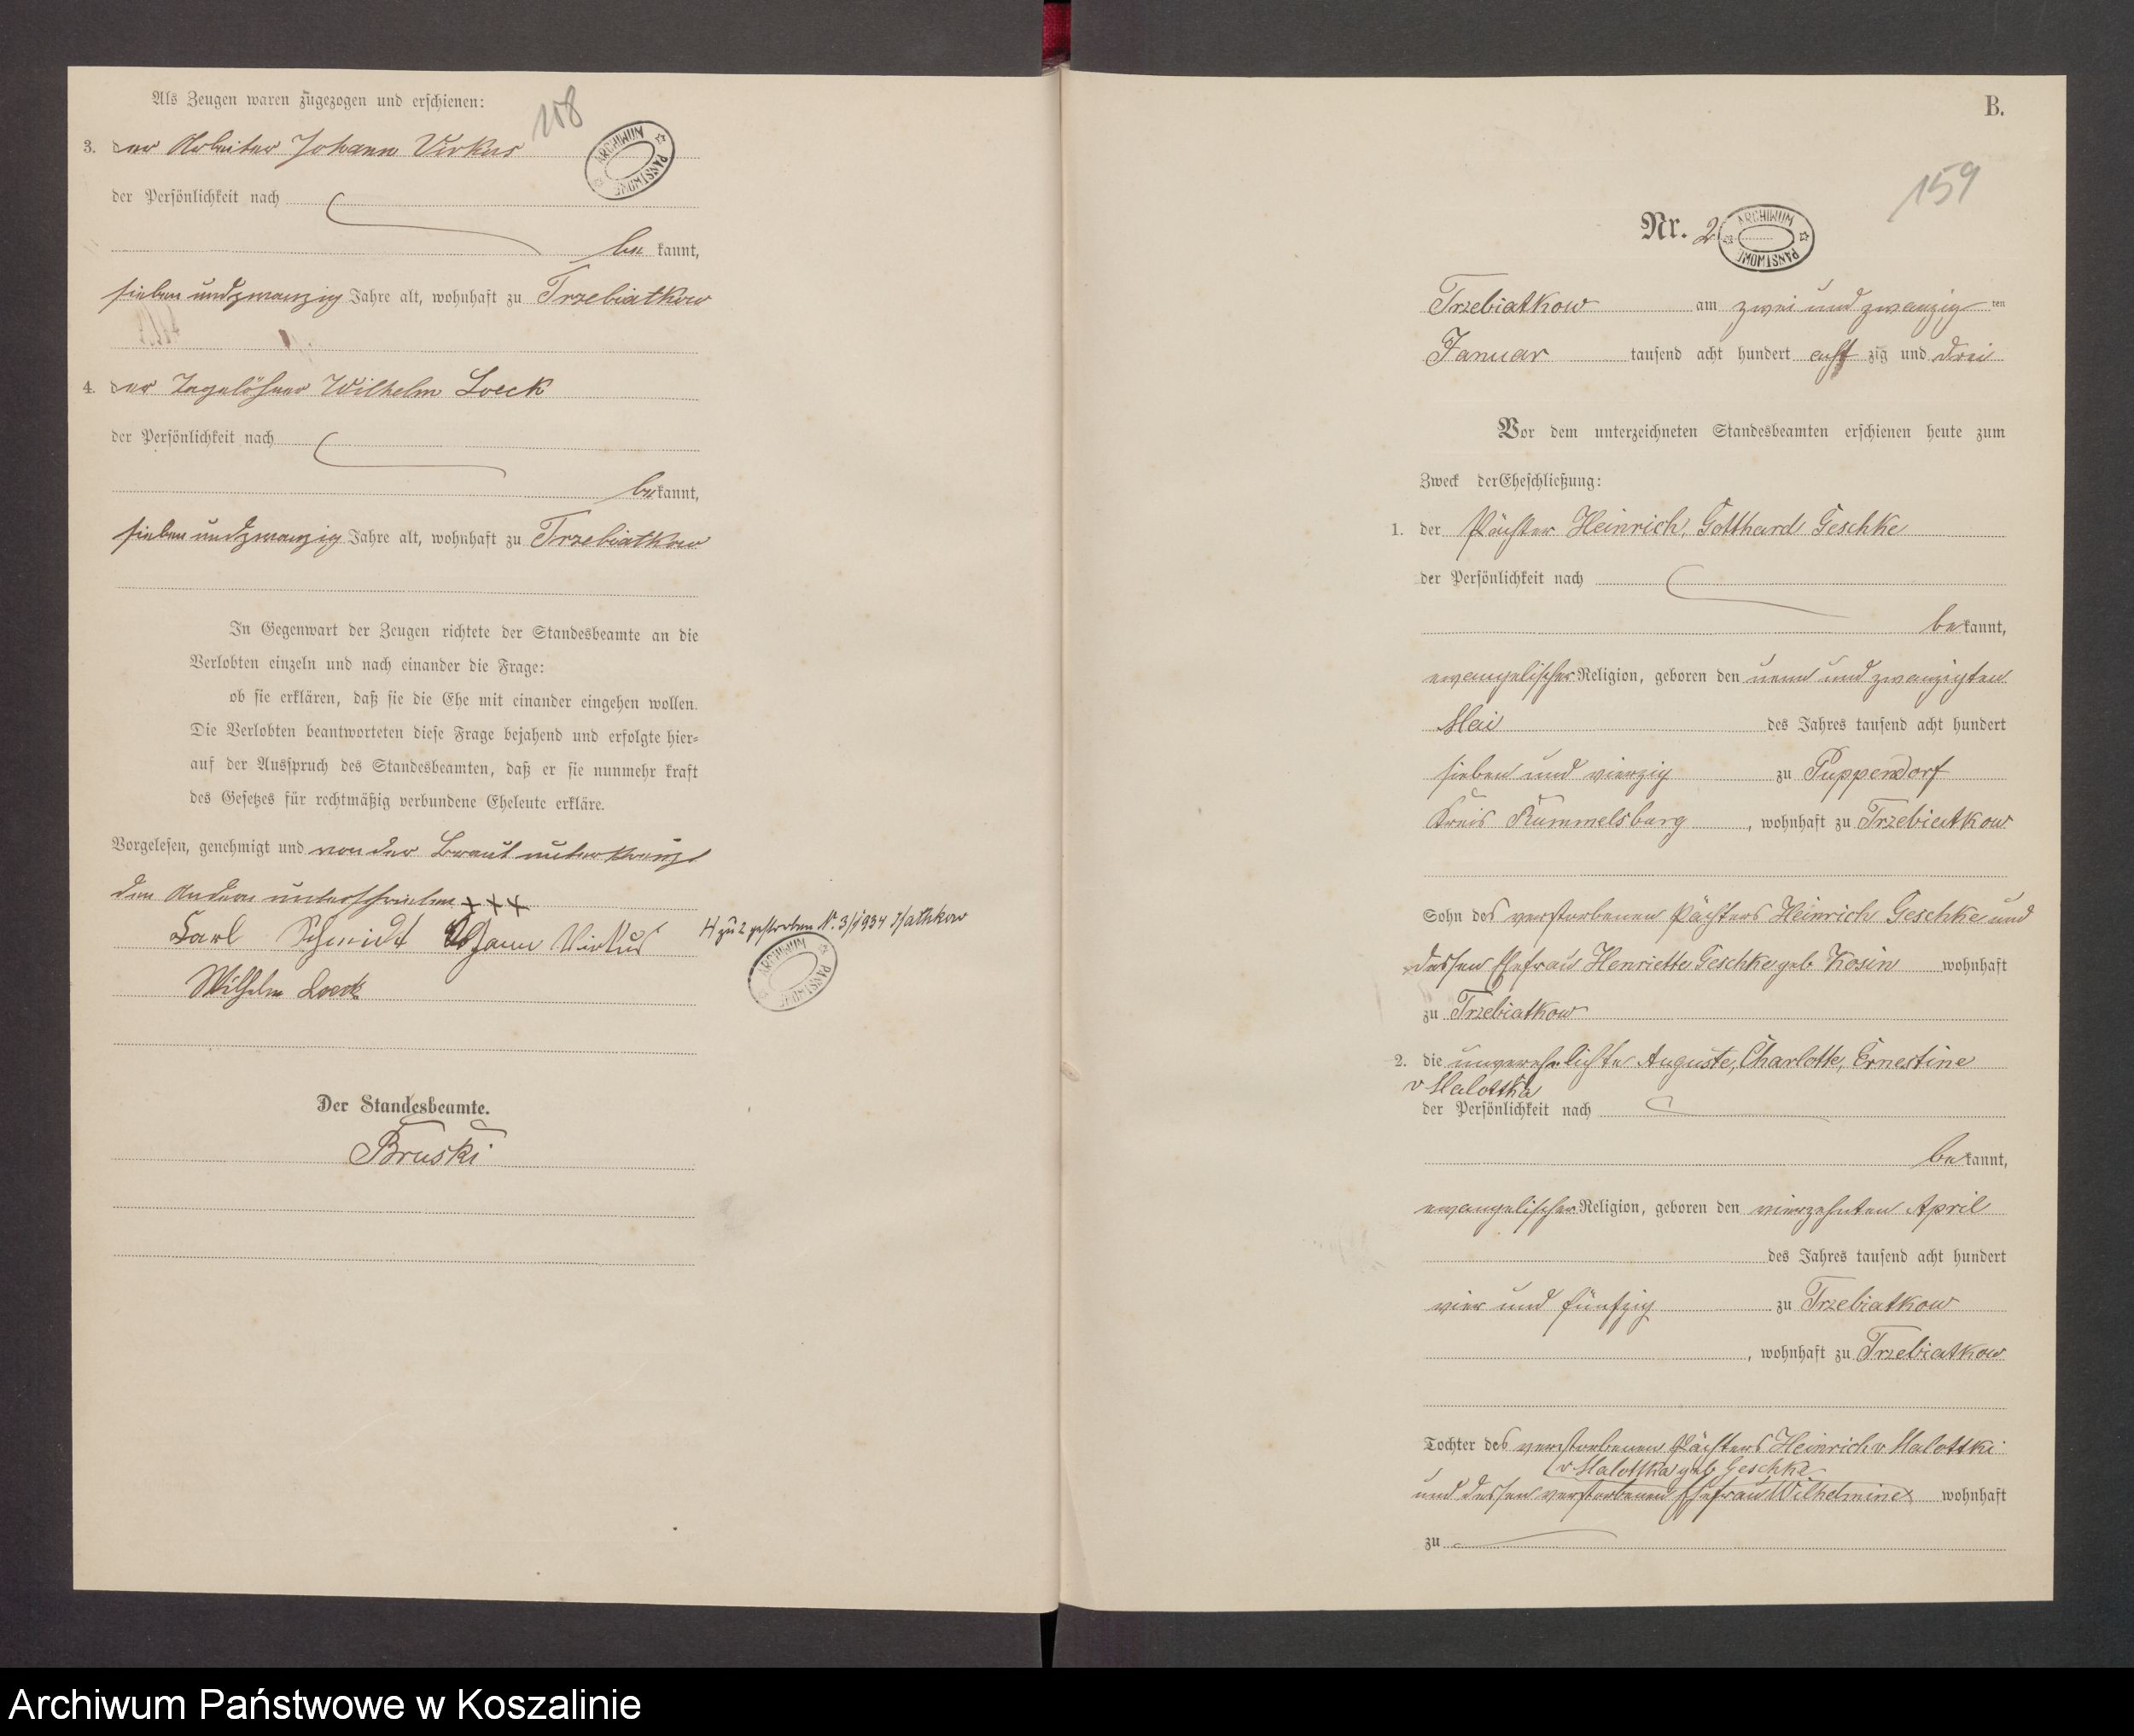 Als Zeugen waren zugezogen und erschienen:
158
3. der Arbeiter Johann Virkus
ARCHIWUM PAŃSTWOWE
der Persönlichkeit nach
be kannt,
sieben und zwanzig Jahre alt, wohnhaft zu Trzebiatkow
4. der Tagelöhner Wilhelm Loeck
der Persönlichkeit nach
be kannt,
sieben und zwanzig Jahre alt, wohnhaft zu Trzebiatkow
In Gegenwart der Zeugen richtete der Standesbeamte an die
Verlobten einzeln und nach einander die Frage:
ob sie erklären, daß sie die Ehe mit einander eingehen wollen.
Die Verlobten beantworteten diese Frage bejahend und erfolgte hier=
auf der Ausspruch des Standesbeamten, daß er sie nunmehr kraft
des Gesetzes für rechtmäßig verbundene Eheleute erkläre.
Vorgelesen, genehmigt und von der Braut unterkreuzt
den Andern unterschrieben +++
Carl Schmidt Johann Virkus
Wilhelm Loeck
H zu 2 gestorben Nr. 3/1934
ARCHIWUM PAŃSTWOWE
Der Standesbeamte.
Bruski
B.
159
Nr. 2
ARCHIWUM PAŃSTWOWE
Trzebiatkow am zwei und zwanzig ten
Januar tausend acht hundert acht zig und drei
Vor dem unterzeichneten Standesbeamten erschienen heute zum
Zweck der Eheschließung:
1. der Pächter Heinrich, Gotthard Geschke
der Persönlichkeit nach
be kannt,
evangelischer Religion, geboren den neun und zwanzigten
Mai des Jahres tausend acht hundert
sieben und vierzig zu Puppendorf
Kreis Rummelsburg, wohnhaft zu Trzebiatkow
Sohn des verstorbenen Pächters Heinrich Geschke und
dessen Ehefrau Henriette Geschke geb Kosin wohnhaft
zu Trzebiatkow
2. die unverehelichte Auguste, Charlotte, Ernestine
v Malottka
der Persönlichkeit nach
be kannt,
evangelischer Religion, geboren den vierzehnten April
des Jahres tausend acht hundert
vier und fünfzig zu Trzebiatkow
, wohnhaft zu Trzebiatkow
Tochter des verstorbenen Pächters Heinrich v Malottki
v Malottka geb Geschke
und dessen verstorbenen Ehefrau Wilhelmine wohnhaft
zu
Archiwum Państwowe w Koszalinie